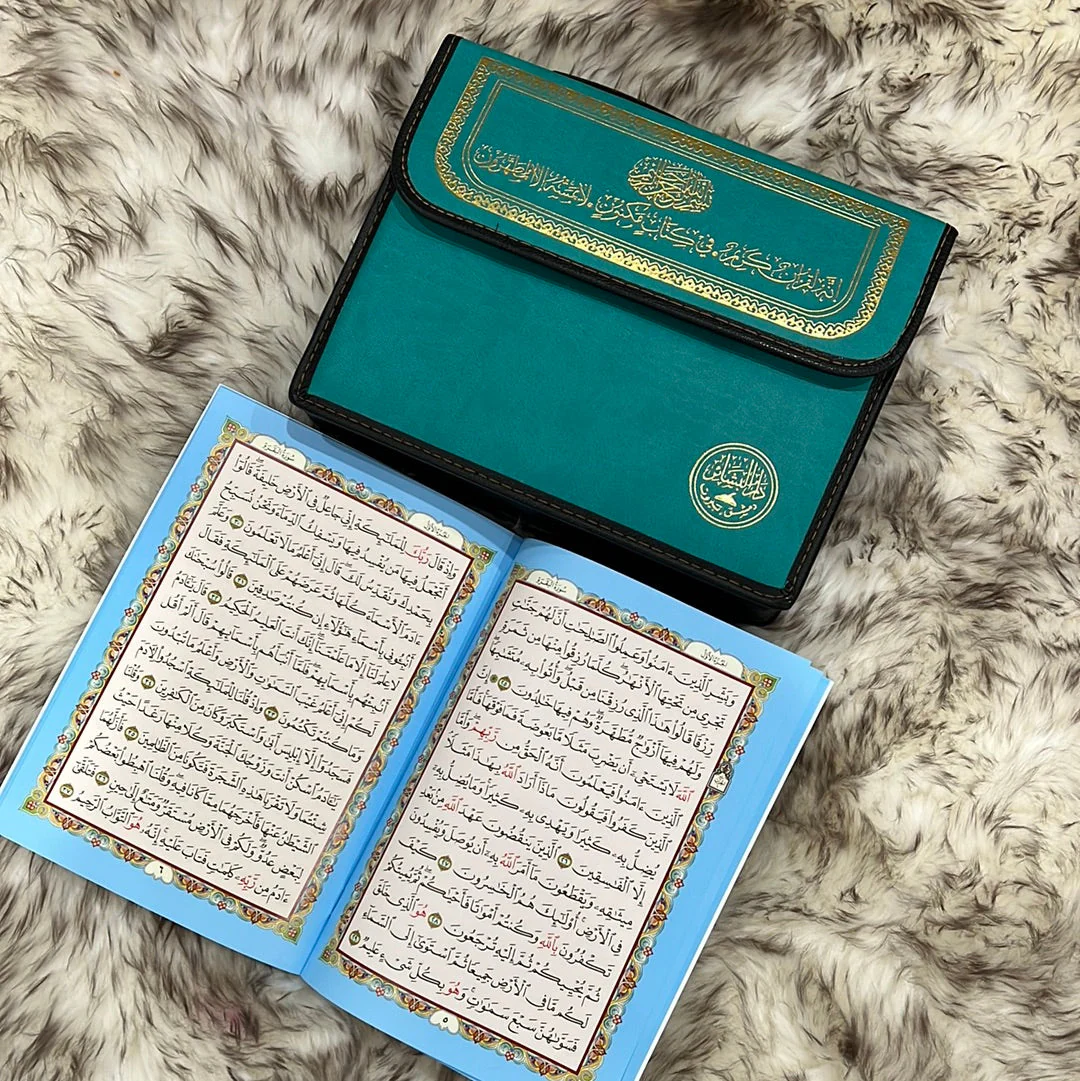 بِسْمِ ٱللَّهِ ٱلرَّحْمَٰنِ ٱلرَّحِيمِ
إِنَّهُ لَقُرْآنٌ كَرِيمٌ . فِي كِتَابٍ مَكْنُونٍ . لَا يَمَسُّهُ إِلَّا الْمُطَهَّرُونَ
دَارُ البَشَائِر
الجُزْءُ الأَوَّلُ
سُورَةُ البَقَرَةِ
وَبَشِّرِ ٱلَّذِينَ ءَامَنُوا۟ وَعَمِلُوا۟ ٱلصَّٰلِحَٰتِ أَنَّ لَهُمْ جَنَّٰتٍ
تَجْرِى مِن تَحْتِهَا ٱلْأَنْهَٰرُ كُلَّمَا رُزِقُوا۟ مِنْهَا مِن ثَمَرَةٍ
رِّزْقًا قَالُوا۟ هَٰذَا ٱلَّذِى رُزِقْنَا مِن قَبْلُ وَأُتُوا۟ بِهِۦ مُتَشَٰبِهًا
وَلَهُمْ فِيهَآ أَزْوَٰجٌ مُّطَهَّرَةٌ وَهُمْ فِيهَا خَٰلِدُونَ ٢٥ إِنَّ
ٱللَّهَ لَا يَسْتَحْىِۦٓ أَن يَضْرِبَ مَثَلًا مَّا بَعُوضَةً فَمَا فَوْقَهَا فَأَمَّا
ٱلَّذِينَ ءَامَنُوا۟ فَيَعْلَمُونَ أَنَّهُ ٱلْحَقُّ مِن رَّبِّهِمْ وَأَمَّا
ٱلَّذِينَ كَفَرُوا۟ فَيَقُولُونَ مَاذَآ أَرَادَ ٱللَّهُ بِهَٰذَا مَثَلًا
يُضِلُّ بِهِۦ كَثِيرًا وَيَهْدِى بِهِۦ كَثِيرًا وَمَا يُضِلُّ بِهِۦٓ
إِلَّا ٱلْفَٰسِقِينَ ٢٦ ٱلَّذِينَ يَنقُضُونَ عَهْدَ ٱللَّهِ مِنۢ بَعْدِ
مِيثَٰقِهِۦ وَيَقْطَعُونَ مَآ أَمَرَ ٱللَّهُ بِهِۦٓ أَن يُوصَلَ وَيُفْسِدُونَ
فِى ٱلْأَرْضِ أُو۟لَٰٓئِكَ هُمُ ٱلْخَٰسِرُونَ ٢٧ كَيْفَ
تَكْفُرُونَ بِٱللَّهِ وَكُنتُمْ أَمْوَٰتًا فَأَحْيَٰكُمْ ثُمَّ يُمِيتُكُمْ
ثُمَّ يُحْيِيكُمْ ثُمَّ إِلَيْهِ تُرْجَعُونَ ٢٨ هُوَ ٱلَّذِى خَلَقَ
لَكُم مَّا فِى ٱلْأَرْضِ جَمِيعًا ثُمَّ ٱسْتَوَىٰٓ إِلَى ٱلسَّمَآءِ
فَسَوَّىٰهُنَّ سَبْعَ سَمَٰوَٰتٍ وَهُوَ بِكُلِّ شَىْءٍ عَلِيمٌ ٢٩
٥
الجُزْءُ الأَوَّلُ
سُورَةُ البَقَرَةِ
وَإِذْ قَالَ رَبُّكَ لِلْمَلَٰٓئِكَةِ إِنِّى جَاعِلٌ فِى ٱلْأَرْضِ خَلِيفَةً قَالُوٓا۟
أَتَجْعَلُ فِيهَا مَن يُفْسِدُ فِيهَا وَيَسْفِكُ ٱلدِّمَآءَ وَنَحْنُ نُسَبِّحُ
بِحَمْدِكَ وَنُقَدِّسُ لَكَ قَالَ إِنِّىٓ أَعْلَمُ مَا لَا تَعْلَمُونَ ٣٠ وَعَلَّمَ
ءَادَمَ ٱلْأَسْمَآءَ كُلَّهَا ثُمَّ عَرَضَهُمْ عَلَى ٱلْمَلَٰٓئِكَةِ فَقَالَ
أَنۢبِـُٔونِى بِأَسْمَآءِ هَٰٓؤُلَآءِ إِن كُنتُمْ صَٰدِقِينَ ٣١ قَالُوا۟ سُبْحَٰنَكَ
لَا عِلْمَ لَنَآ إِلَّا مَا عَلَّمْتَنَآ إِنَّكَ أَنتَ ٱلْعَلِيمُ ٱلْحَكِيمُ ٣٢ قَالَ يَٰٓـَٔادَمُ
أَنۢبِئْهُم بِأَسْمَآئِهِمْ فَلَمَّآ أَنۢبَأَهُم بِأَسْمَآئِهِمْ قَالَ أَلَمْ أَقُل
لَّكُمْ إِنِّىٓ أَعْلَمُ غَيْبَ ٱلسَّمَٰوَٰتِ وَٱلْأَرْضِ وَأَعْلَمُ مَا تُبْدُونَ
وَمَا كُنتُمْ تَكْتُمُونَ ٣٣ وَإِذْ قُلْنَا لِلْمَلَٰٓئِكَةِ ٱسْجُدُوا۟ لِـَٔادَمَ
فَسَجَدُوٓا۟ إِلَّآ إِبْلِيسَ أَبَىٰ وَٱسْتَكْبَرَ وَكَانَ مِنَ ٱلْكَٰفِرِينَ ٣٤ وَقُلْنَا
يَٰٓـَٔادَمُ ٱسْكُنْ أَنتَ وَزَوْجُكَ ٱلْجَنَّةَ وَكُلَا مِنْهَا رَغَدًا حَيْثُ
شِئْتُمَا وَلَا تَقْرَبَا هَٰذِهِ ٱلشَّجَرَةَ فَتَكُونَا مِنَ ٱلظَّٰلِمِينَ ٣٥ فَأَزَلَّهُمَا
ٱلشَّيْطَٰنُ عَنْهَا فَأَخْرَجَهُمَا مِمَّا كَانَا فِيهِ وَقُلْنَا ٱهْبِطُوا۟ بَعْضُكُمْ
لِبَعْضٍ عَدُوٌّ وَلَكُمْ فِى ٱلْأَرْضِ مُسْتَقَرٌّ وَمَتَٰعٌ إِلَىٰ حِينٍ ٣٦ فَتَلَقَّىٰٓ
ءَادَمُ مِن رَّبِّهِۦ كَلِمَٰتٍ فَتَابَ عَلَيْهِ إِنَّهُۥ هُوَ ٱلتَّوَّابُ ٱلرَّحِيمُ ٣٧
٦